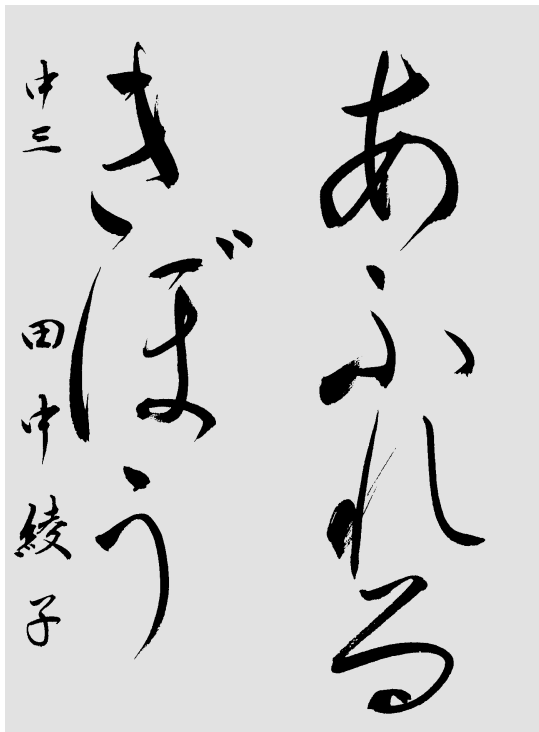 あふれる
きぼう
中三 田中綾子